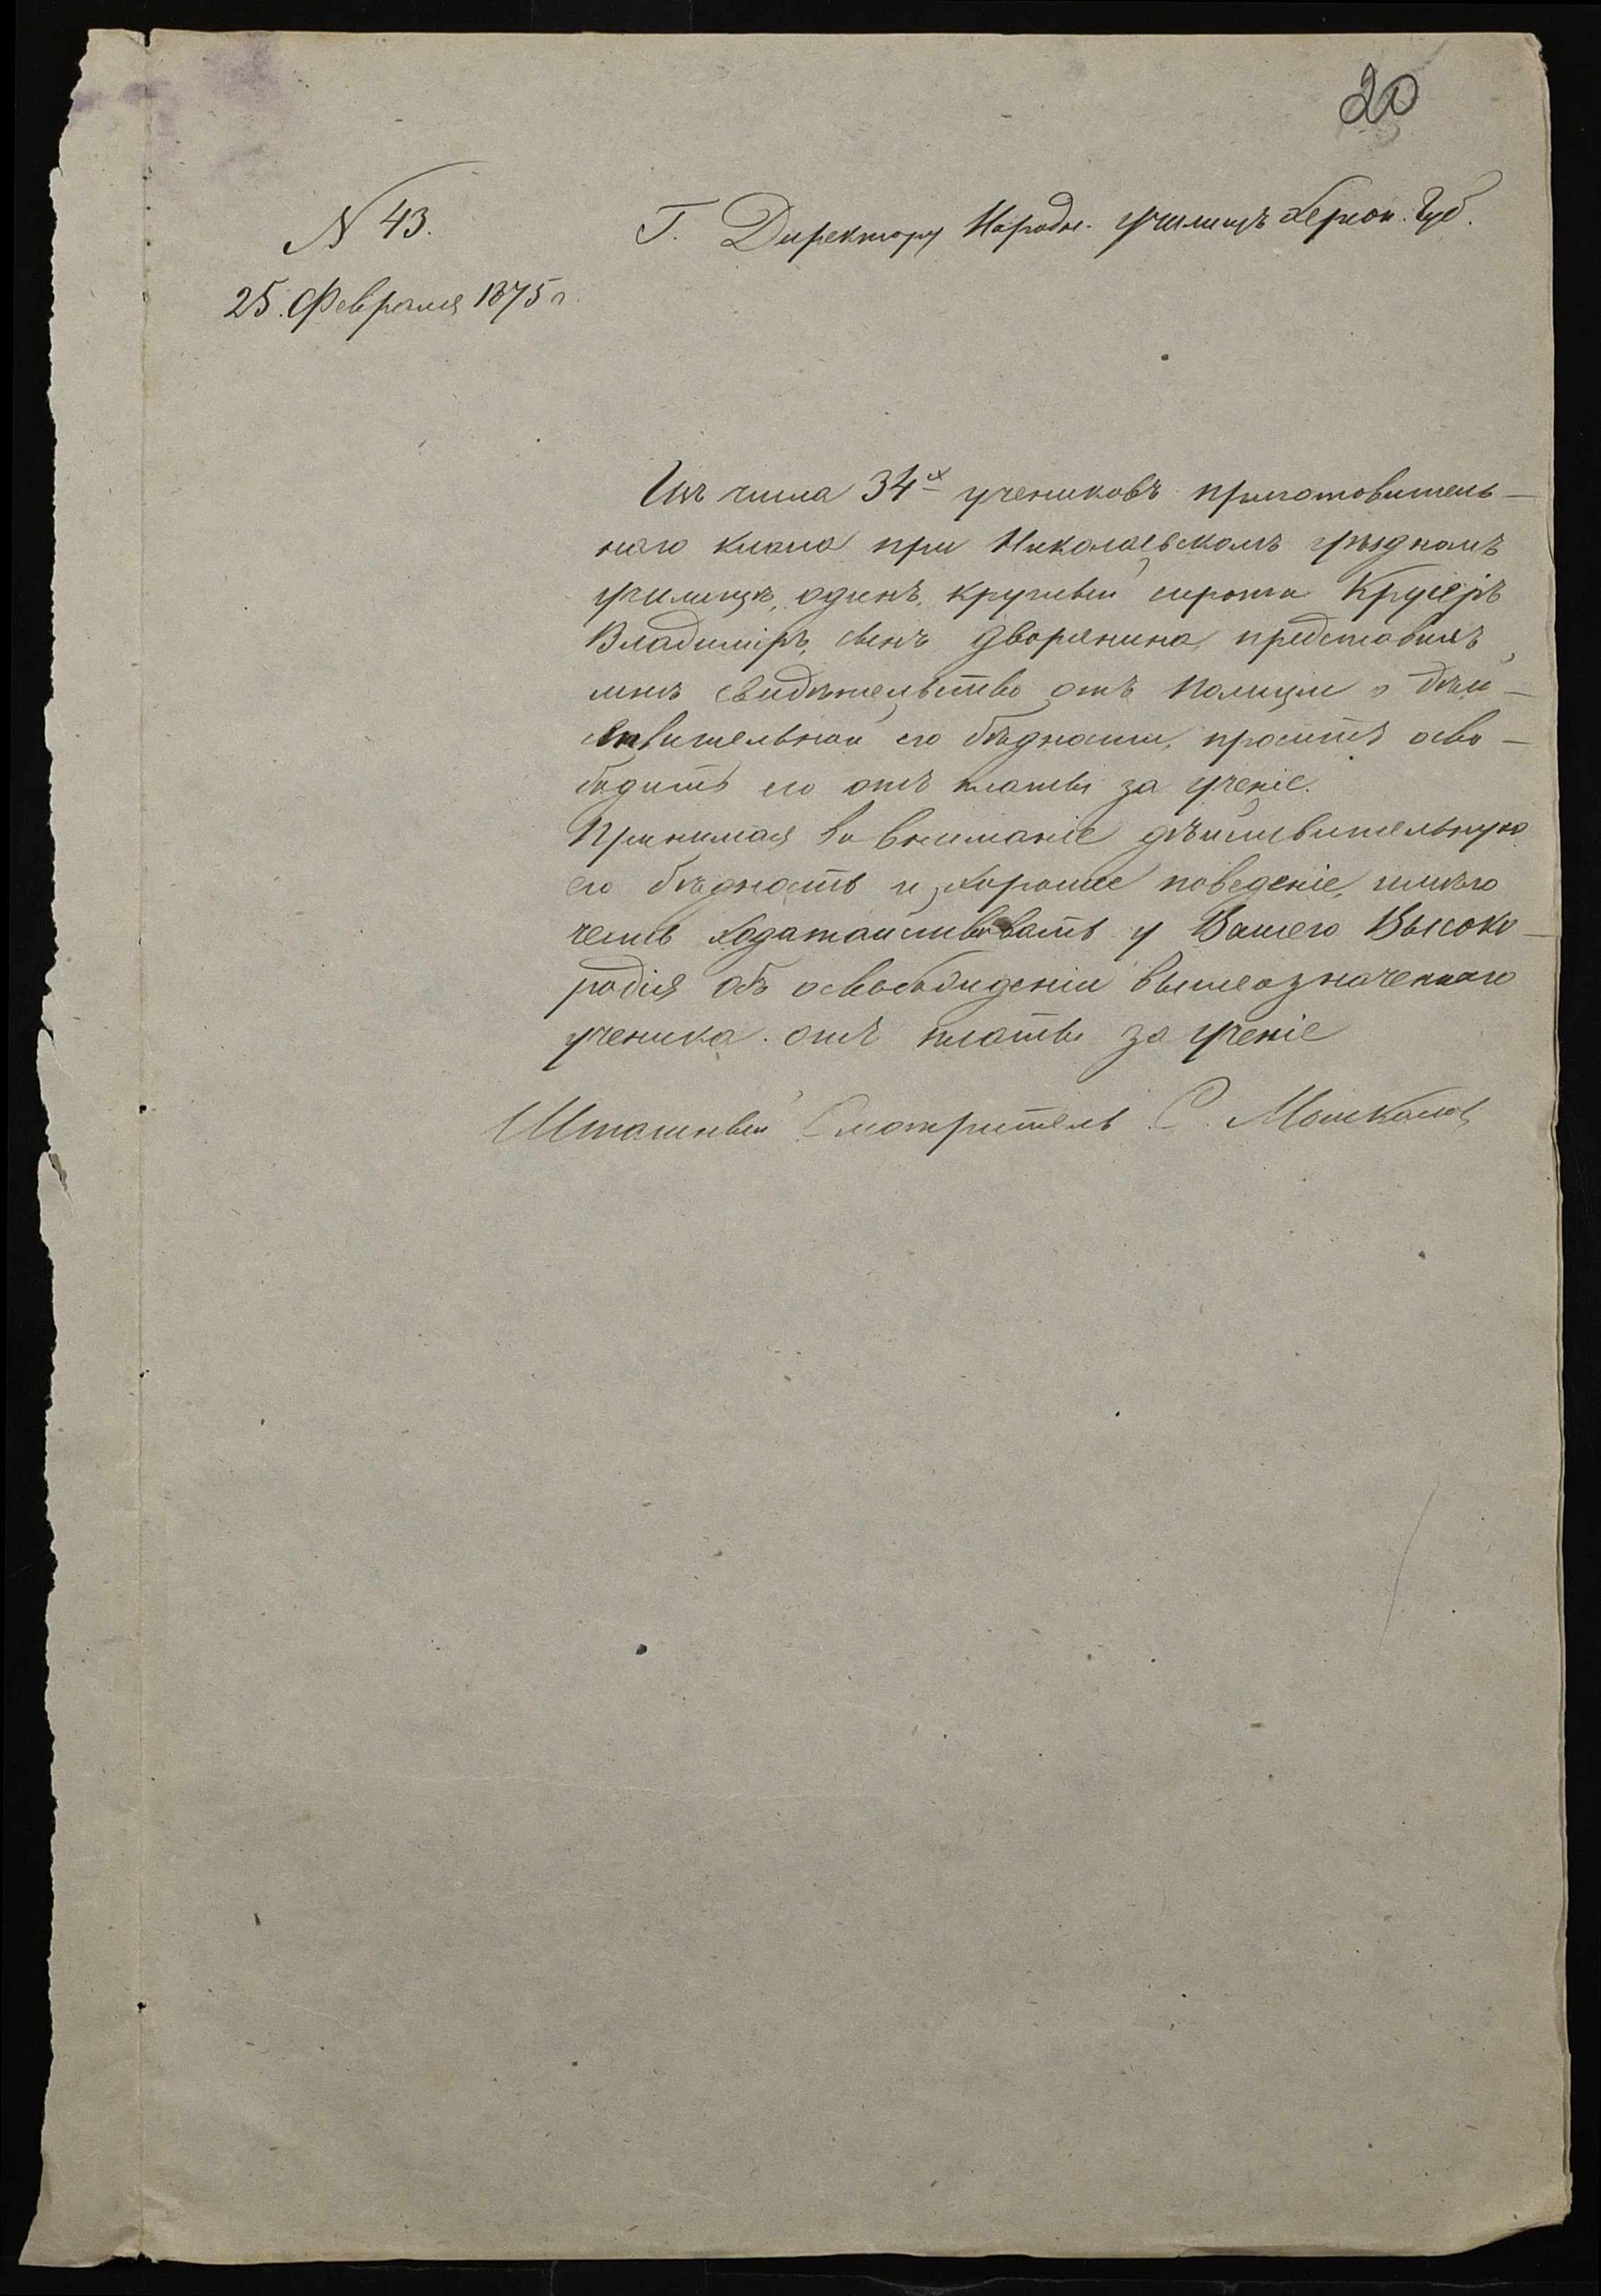 20
N 43.
Г. Директору Народн. училищъ Херсон. Губ.
25. Февраля 1875 г.
Изъ числа 34х учениковъ приготовитель-
наго класса при Николаевскомъ уѣздномъ
училищѣ, одинъ, круглый сирота
Владиміръ, сынъ дворянина, представивъ
мнѣ свидѣтельство отъ Полиціи о дѣй-
ствительной его бѣдности, проситъ осво-
бодить его отъ платы за ученіе.
Принимая во вниманіе дѣйствительную
его бѣдность и хорошее поведеніе, имѣю
честь ходатайствовать у Вашего Высоко-
родія объ освобожденіи вышеозначеннаго
ученика отъ платы за ученіе
Штатный Смотритель С.